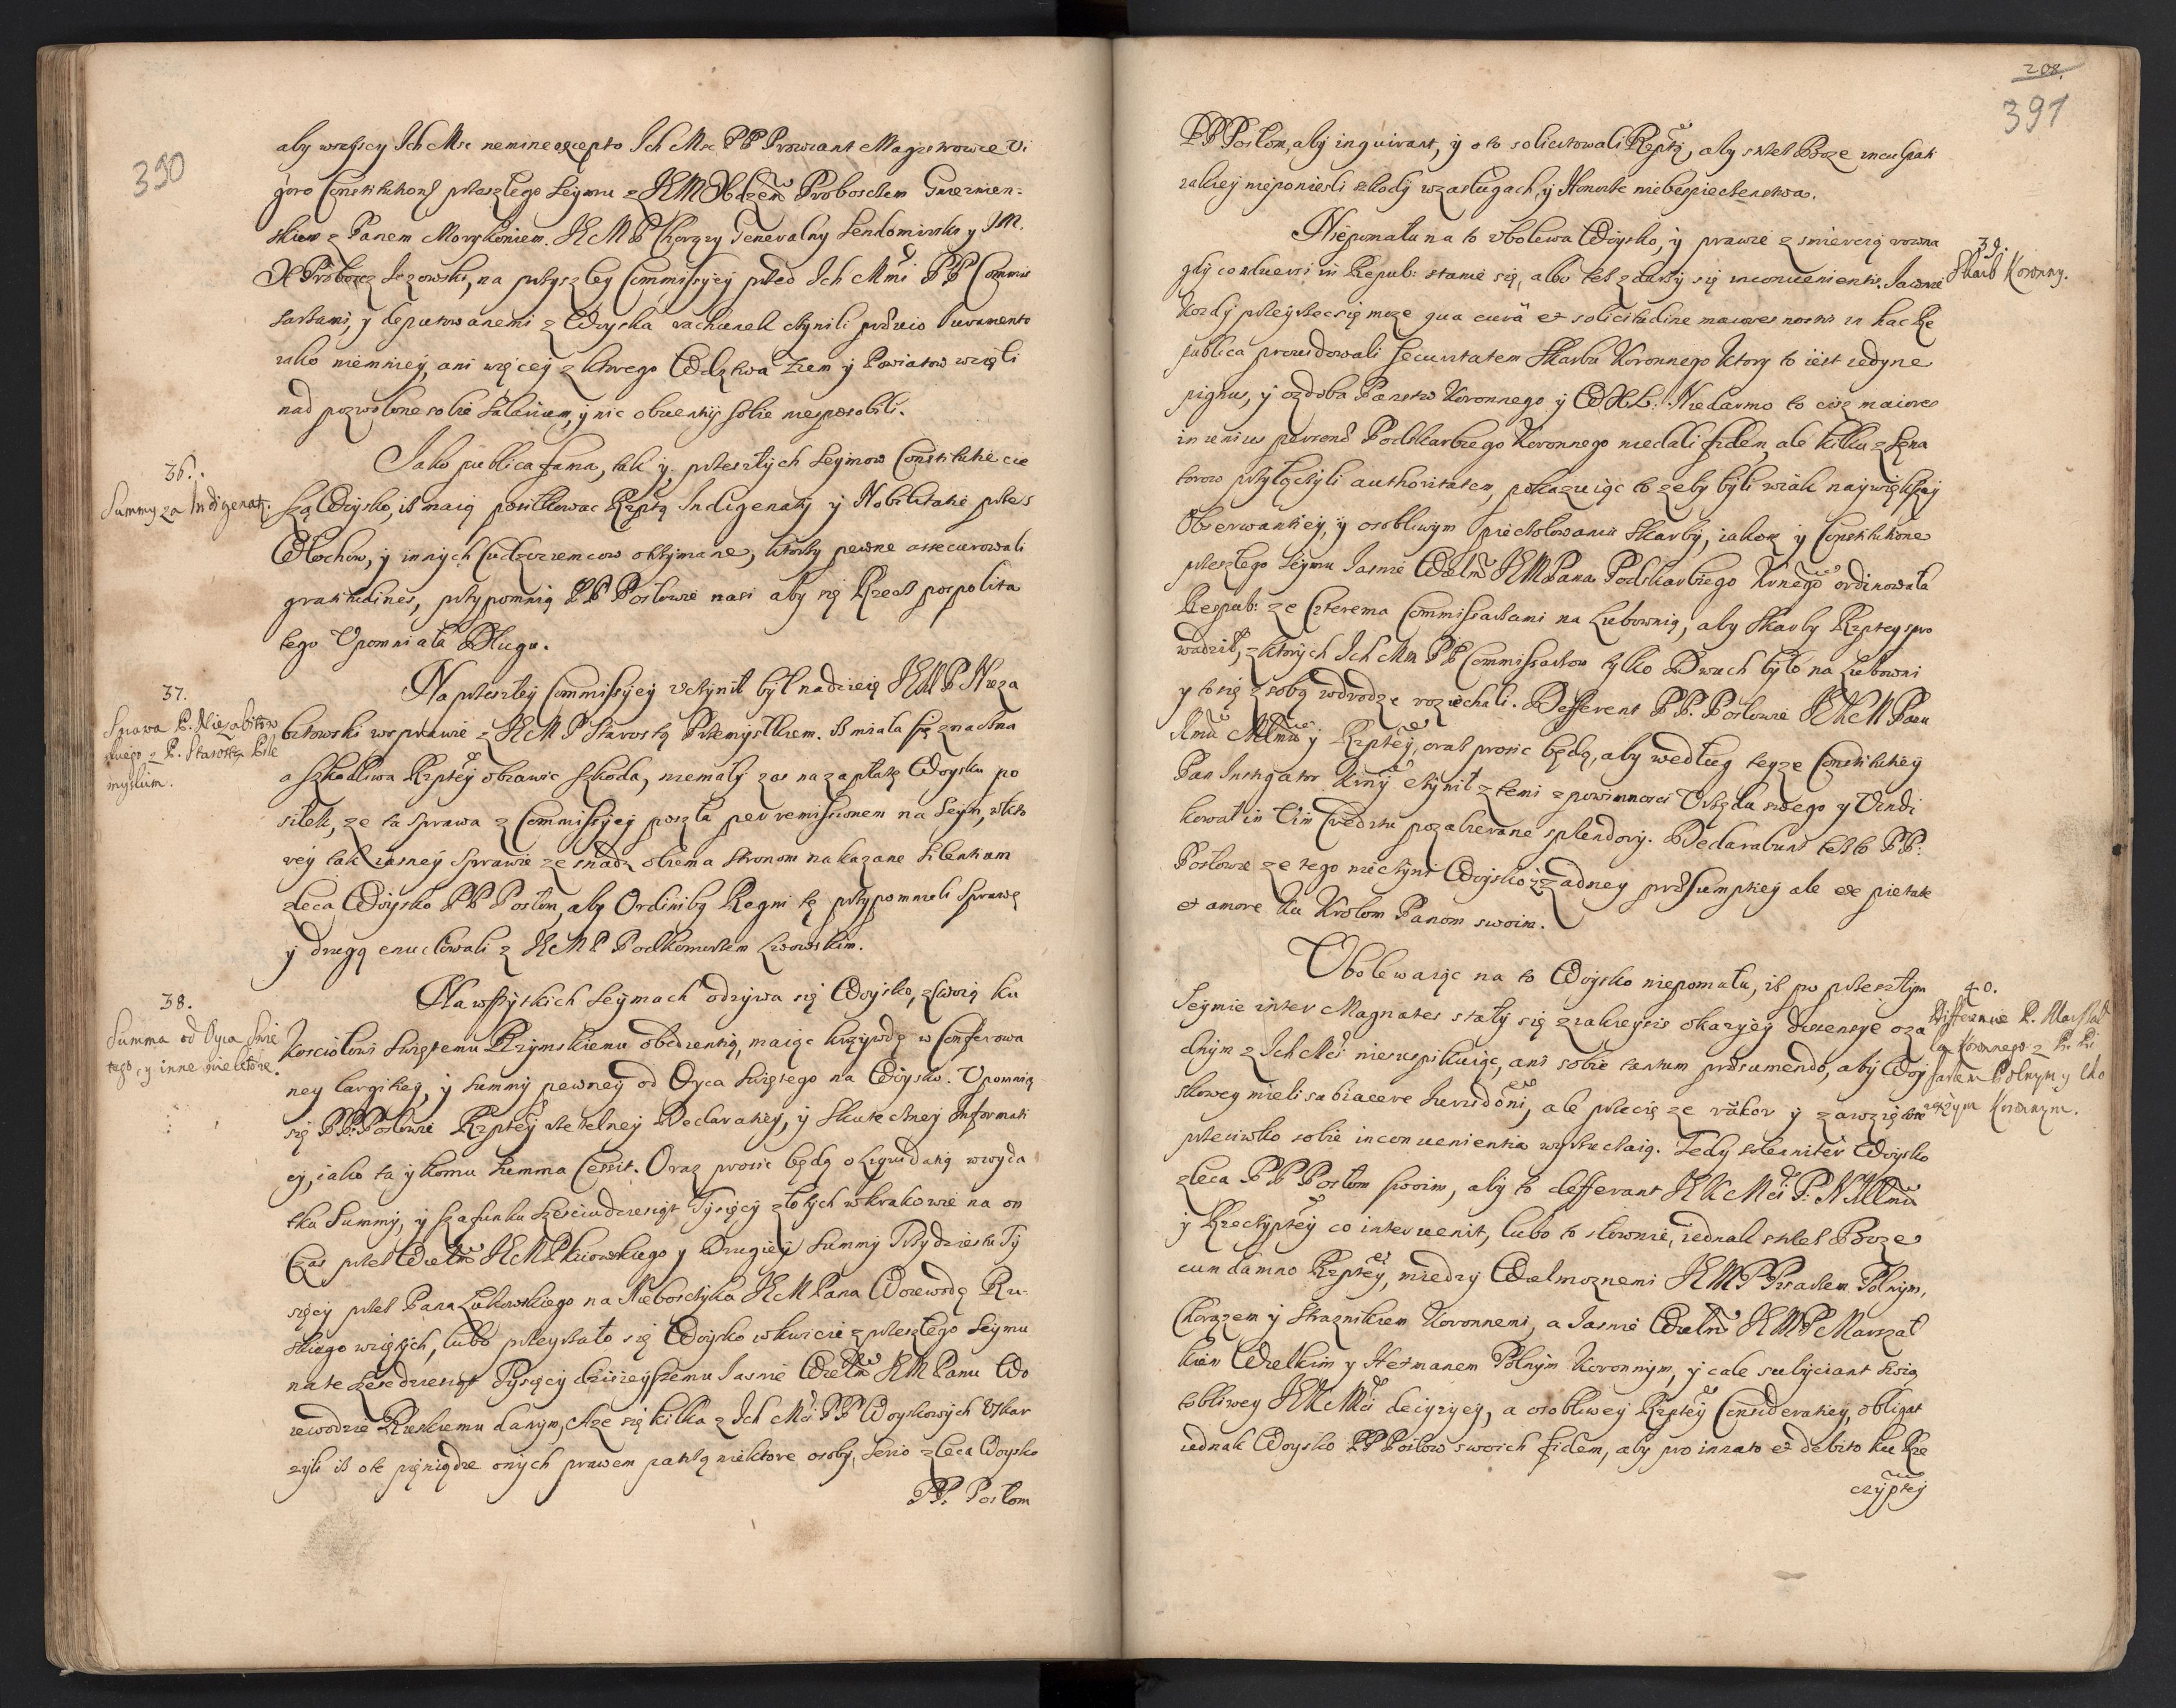 390
aby wszyscy Ich Mc nemine excepto Ich Mc PP Prowiant Magistrowie vi
gore Constitutionis przeszłego Seymu z JEM Proboszczem Gnieznien-
skim z Panem Morykoniem. JEMP Chorązy Generalny Sendomirski y JM.
X Proboszcz, na przyszłey Commissyey przed Ich Mmi PP Commis
sarzami, y deputowanemi z Woyska rachunek czynili prævio Juramento
iako niemniey, ani więcey z ktorego Wdztwa Ziem y Powiatow wzięli
nad pozwolone sobie Salarium, y nic obuentij sobie nesposobili.
36.
Summy za Indigenaty.
Iako publica fama, tak y przeszłych Seymow Constitutie cie
szą Woysko, iż maią posiłkowac Rzptą Indigenaty y Nobilitatie przes
Włochow, y innych Cudzoziemcow otrzymane, ktorzy pewne assecurowali
gratitudines, przypomnią PP Posłowie nasi aby się Rzecz pospolita
tego Upomniała Długu.
37.
Sprawa P. Niezabitow
skiego z P. Starostą Prze
myskim.
Na przeszłey Commissyey uczynił był nadzieię JEMP Nieza
bitowski w sprawie z JEMP Starostą Przemyskim. Iż miała się znaczna
a szkodliwa Rzptey obiawic szkoda, niemały zas na zapłatę Woysku po
siłek, ze ta sprawa z Commissyey poszła per remissionem na Seym, w kto
rey tak iasney Sprawie ze snadz obiema stronom nakazane silentium
zleca Woysko PP Posłom, aby Ordinibq Regni tę przypomnieli Sprawę
y drugą enucleowali z JEMP Podkomorzem Lwowskim.
38.
Summa od Oyca Swię
tego, y inne niektore.
Na wszystkich Seymach odzywa się Woysko, z swoią ku
Kosciołowi Swiętemu Rzymskiemu obedientią, maiąc krzywdę w Conferowa
ney largitiey, y Summy pewney od Oyca Swiętego na Woysko. Upomnią
się PP. Posłowie Rzptey rzetelney Declaratiey, y skuteczney Informati
ey, iako ta y komu Summa Cessit. Oraz prosic będą o Liquidatią wwyda
tku Summy, y szafunku szesciudziesiąt Tysięcy złotych w krakowie na on
czas przez Wielm JEMP kiiowskiego y drugiey Summy Trzydziestu Ty
sięcy przez Pana Lukowskiego na Nieboszczyka JEM Pana Woiewodę Ru-
skiego wziętych, lubo przeyrzało się Woysko w kwicie z przeszłego Seymu
na te szescdziesiąt Tysięcy dzisieyszemu Iasnie Wielm JEM Panu Wo
iewodzie Ruskiemu danym, Aze się kilka z Ich Mci PP Woyskowych Uskar
zyli iż o te pięniądze onych prawem patrzą niektore osoby, Serio zleca Woysko
PP. Posłom
208.
391
PP Posłom, aby inquirant, y o to solicitowali Rzptą, aby strzez Boze inculpati
zakiey nieponiesli szkody w zasługach, y Honorze niebespieczenstwa.
39.
Skarb Koronny.
Niepomału na to ubolewa Woysko, y prawie z smiercią rowna
gdy co aduersi in Repub: stanie się, albo tesz zdarzy się inconuenientis. Iawnie
kozdy przeyrzecsię moze qua cura et solicitudine maiores nostri in hac Re
publica prouidowali securitatem Skarbu Koronnego ktory to iest iedyne
pignus, y ozdoba Panstw Koronnego y WXL: Niedarmo to cisz maiores
in unius personā Podskarbiego Koronnego niedali fidem, ale kilku z Sena
torow przyłączyli authoritatem, pokazuiąc to zeby byli wiak naywiększey
Obserwantiey, y osobliwym piectołowaniu Skarby, iakosz y Constitutione
przeszłego Seymu Iasnie Wielm JEM Pana Podskarbiego Kornnego ordinowała
Respub: ze Czterema Commissarzami na Lubownią, aby Skarby Rzptey spro
wadził, z ktorych Ich Mm PP Commissarzow tylko Dwuch było na Lubowni
y to się z sobą wdrodze roziechali. Defferent PP. Posłowie JKM Panu
Nmu Mlmu y Rzptey, oraz prosic będą, aby według teyze Constitutiey
Pan Instigator Krnny czynił z temi z powinnosci Urzędu swego y Vindi
kował in Vim Creditu pozabierane splendory. Declarabunt tesz to PP:
Posłowie ze tego nieczyni Woysko z zadney præsumptiey ale ex pietate
et amore ku Krolom Panom swoim.
40.
Differencie P. Marszał
ka Koronnego z PP. Pi
sarzem Polnym y Cho
rązym Koronnym.
Ubolewaiąc na to Woysko niepomału, iż po przeszłym
Seymie inter Magnates stały się z iakieysis okazyey dissensye oza
dnym z Ich Mci niesuspikuiąc, ani sobie tantum præsumendo, aby Woy
skowey mieli subiacere Iurisdoni, ale przecię ze rākor y zawzięctwo
przeciwko sobie inconuenientia wyrzucaią. Tedy soleniter Woysko
zleca PP Posłom swoim, aby to defferant JKMci P. N. Mlmu
y Rzeczyptey co interuenit, lubo to słownie, iednak strzez Boze
cum damno Rzptey, miedzy Wielmoznemi JEMP Pisarzem Polnym,
Chorązem y Straznikiem Koronnemi, a Iasnie Wielm JEMP Marszał
kiem Wielkim y Hetmanem Polnym Koronnym, y cale subyciant swią
tobliwey JKMci decyzyey, a osobliwey Rzptey Consideratiey, obligat
iednak Woysko PP Posłow swoich fidem, aby pro innato et debito ku Rze
czyptey